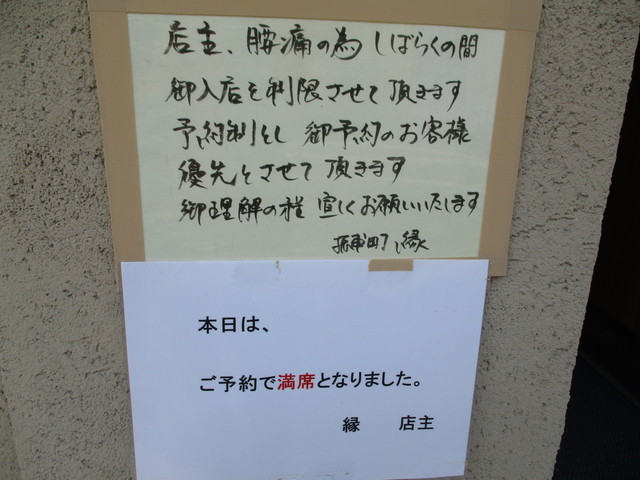 店主、腰痛の為しばらくの間
御入店を制限させて頂きます
予約制とし 御予約のお客様
優先とさせて頂きます
御理解の程 宜しくお願いいたします
縁
本日は、
ご予約で満席となりました。
縁 店主